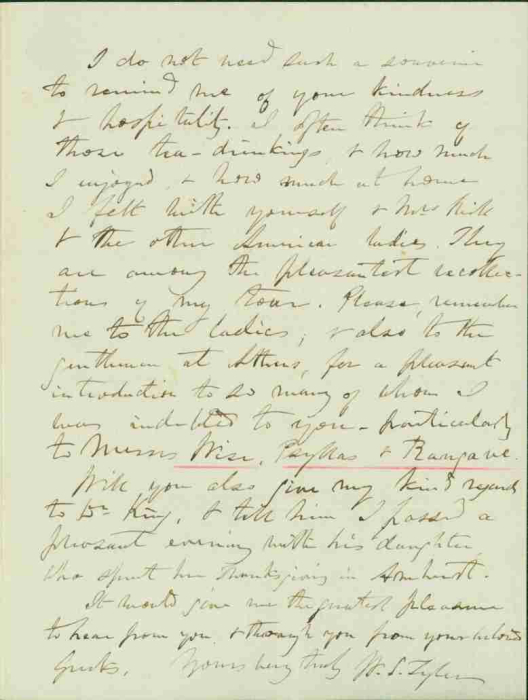 I do not need such a souvenir
to remind me of your kindness
& hospitality. I often think of
those tea-drinkings, & how much
I enjoyed, & how much at home
I felt with yourself & Mrs Kirk
& the other American ladies. They
are among the pleasantest recollec-
tions of my tour. Please, remember
me to the ladies; & also to the
gentlemen at Athens, for a pleasant
introduction to so many of whom I
was indebted to you - particularly
to Messrs Wise, Psyllas & Rangave.
Will you also give my kind regards
to Dr King, & tell him I passed a
pleasant evening with his daughter
who spent her Thanksgiving in Amherst.
It would give me the greatest pleasure
to hear from you & through you from your beloved
Greeks. Yours very truly W. S. Tyler